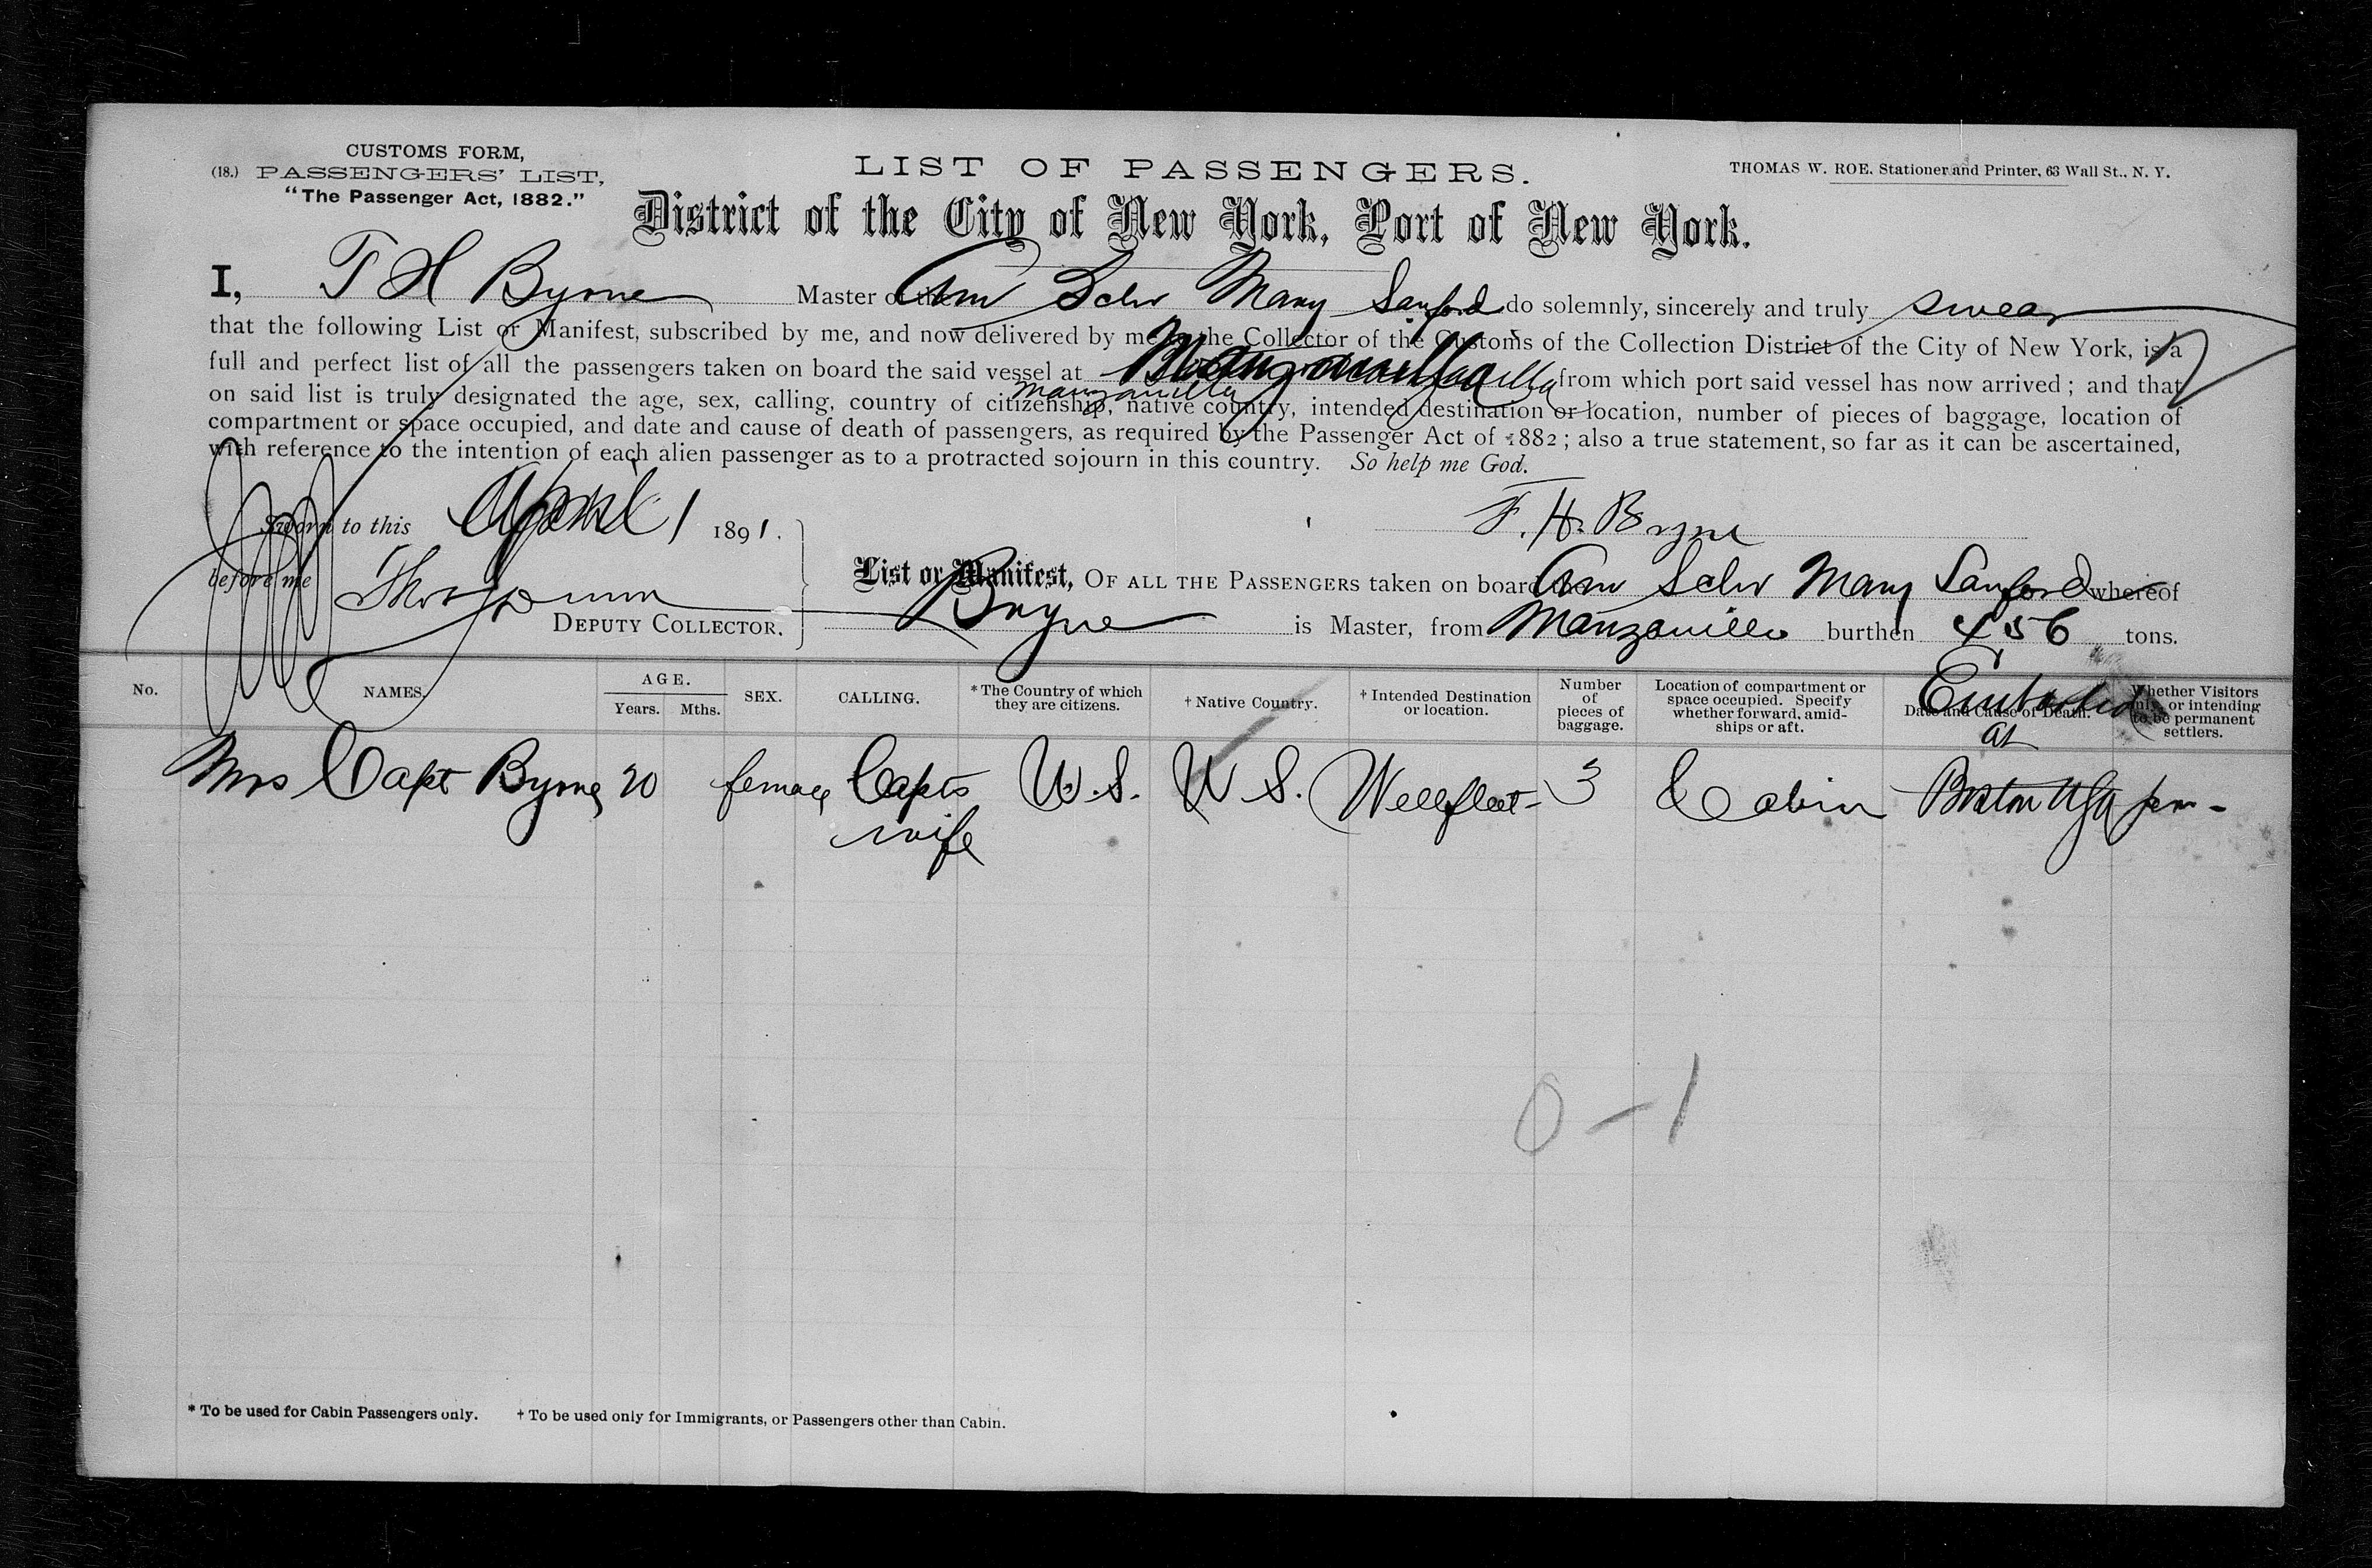 CUSTOMS FORM,
(18.) PASSENGERS' LIST,
"The Passenger Act, 1882."
LIST OF PASSENGERS.
THOMAS W. ROE. Stationer and Printer, 63 Wall St., N. Y.
District of the City of New York, Port of New York.
I, T H Byrne Master of the Am Schr Mary Sanford do solemnly, sincerely and truly swear
that the following List or Manifest, subscribed by me, and now delivered by me to the Collector of the Customs of the Collection District of the City of New York, is a
full and perfect list of all the passengers taken on board the said vessel at from which port said vessel has now arrived; and that
Manzanilla
on said list is truly designated the age, sex, calling, country of citizenship, native country, intended destination or location, number of pieces of baggage, location of
compartment or space occupied, and date and cause of death of passengers, as required by the Passenger Act of 1882; also a true statement, so far as it can be ascertained,
with reference to the intention of each alien passenger as to a protracted sojourn in this country. So help me God.
Sworn to this April 1 1891.
F. H. Bryne
before me
DEPUTY COLLECTOR.
List or Manifest, OF ALL THE PASSENGERS taken on board the Am Schr Mary Sanford whereof
Bryne is Master, from Manzanillo burthen 456 tons.
No.
NAMES.
AGE.
Years. Mths.
SEX.
CALLING.
* The Country of which they are citizens.
† Native Country.
† Intended Destination or location.
Number of pieces of baggage.
Location of compartment or space occupied. Specify whether forward, amidships or aft.
Date and Cause of Death.
at
Whether Visitors only or intending to be permanent settlers.
Mrs Capt Byrne 20 female Capts U.S. U.S. Wellfleet 3 Cabin Boston USA
wife
0-1
* To be used for Cabin Passengers only. † To be used only for Immigrants, or Passengers other than Cabin.